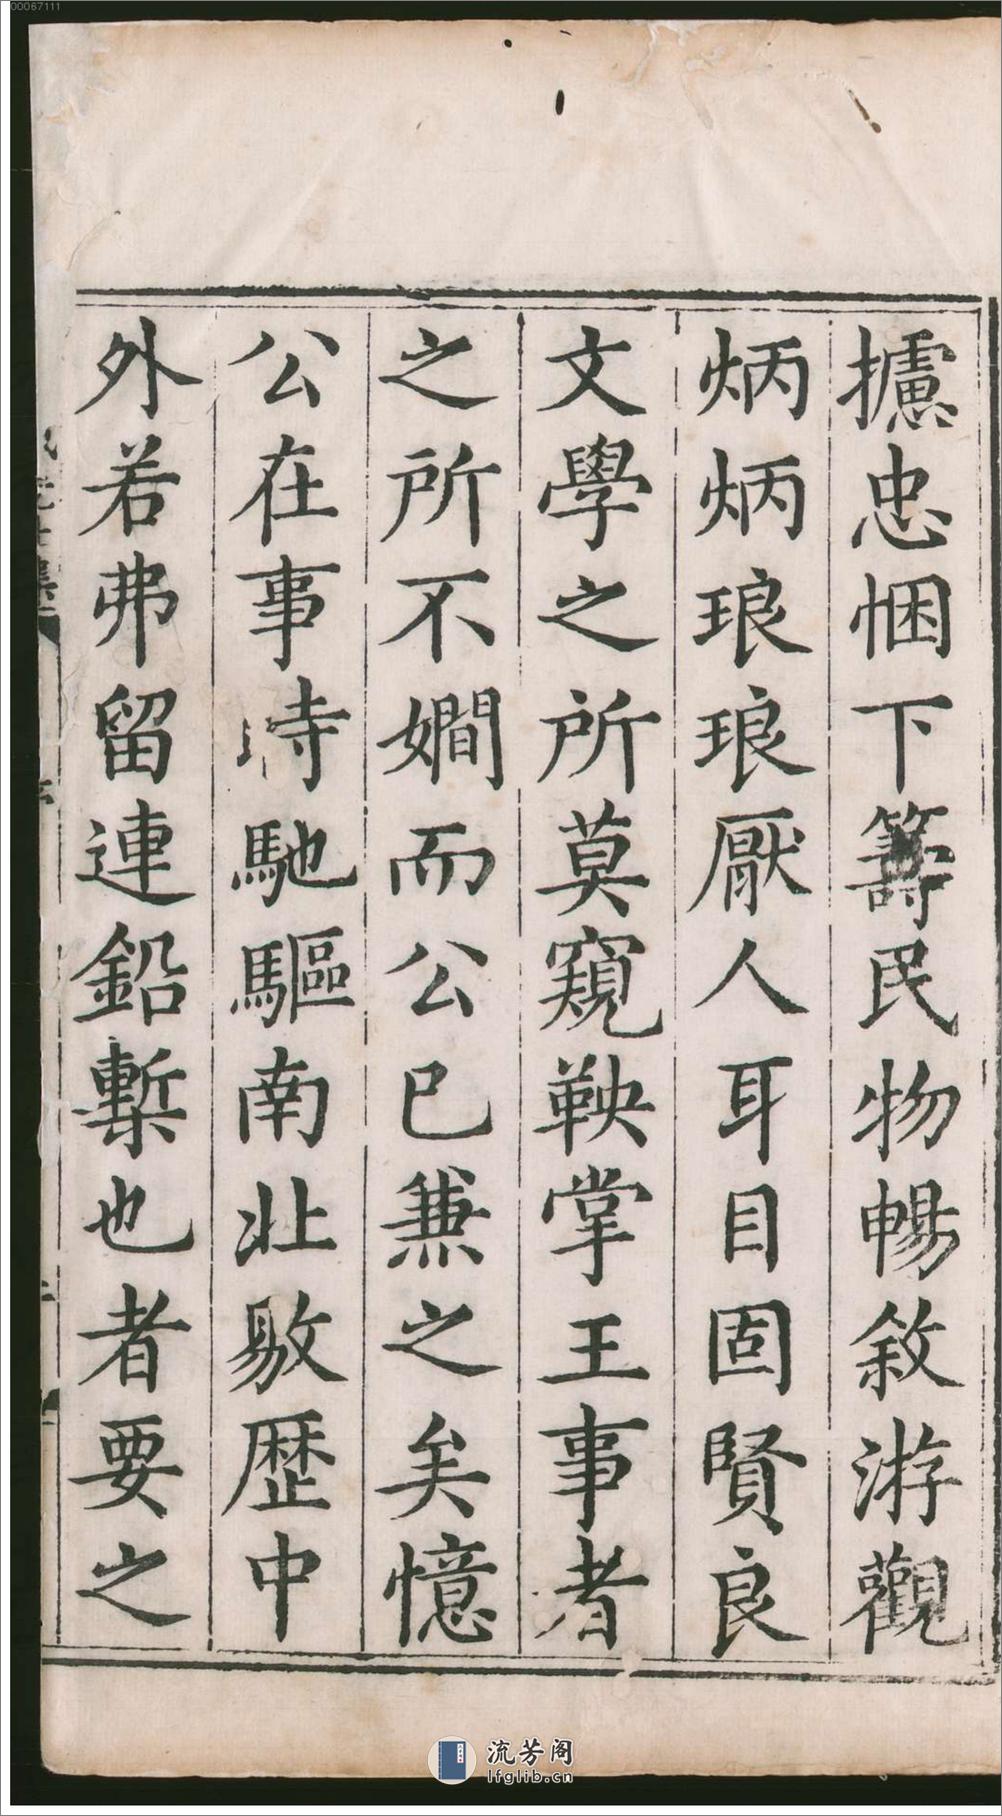 00067111
攄忠悃下籌民物暢敘游觀
炳炳琅琅厭人耳目固賢良
文學之所莫窺鞅掌王事者
之所不嫺而公已兼之矣憶
公在事時馳驅南北敭歷中
外若弗留連鉛槧也者要之
流芳阁
lfglib.cn